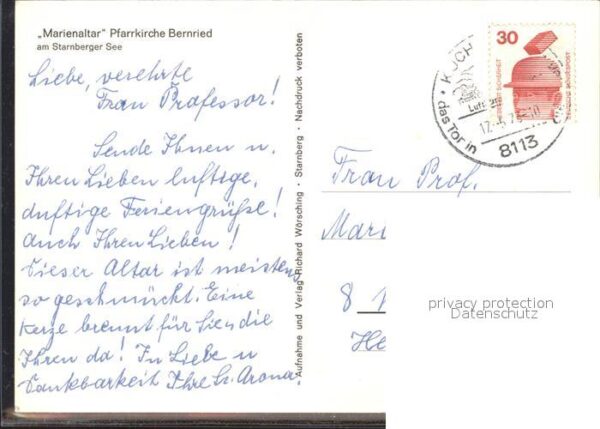 „Marienaltar" Pfarrkirche Bernried
am Starnberger See
Liebe, verehrte
Frau Professor!
Sende Ihnen u.
Ihren Lieben luftige,
duftige Feriengrüße!
Auch Ihren Lieben!
Dieser Altar ist meistens
so geschmückt. Eine
Kerze brennt für Sie u die
Ihren da! In Liebe u
Dankbarkeit Ihre Sr. Arona.
Aufnahme und Verlag Richard Wörsching · Starnberg · Nachdruck verboten
30
KOCH
das Tor in
8113
Frau Prof.
Mari
8
He
privacy protection
Datenschutz